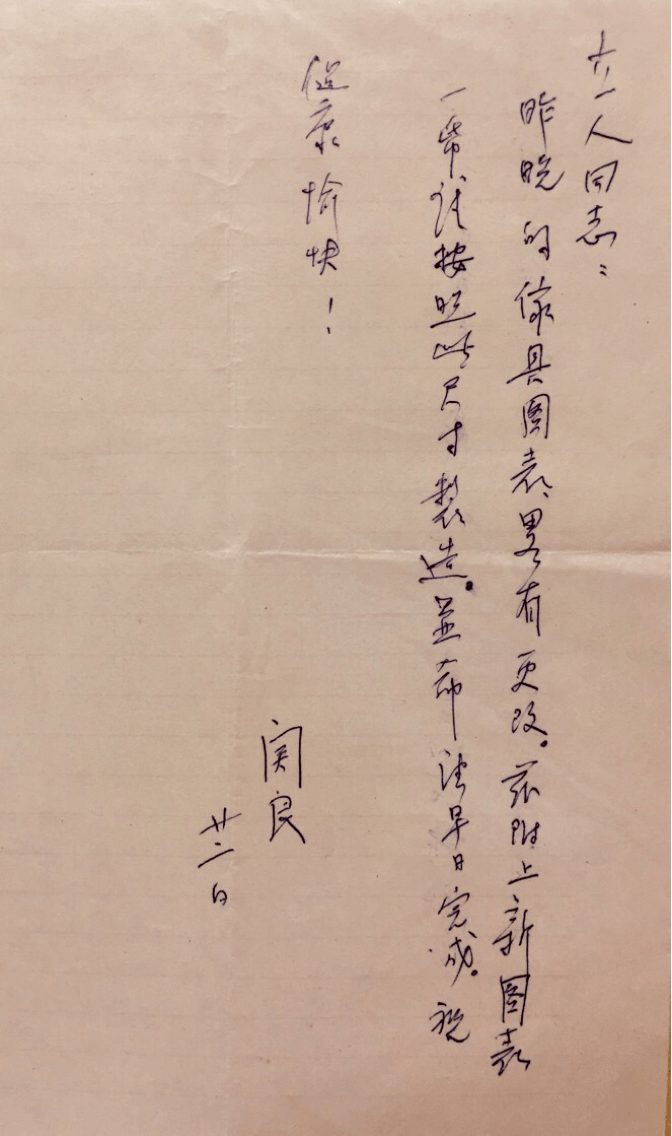 立人同志：
昨晚的傢具图表，畧有更改。兹附上新图表
一帋，请按照此尺寸製造。並希望早日完成。祝
健康愉快！
関良
廿二日